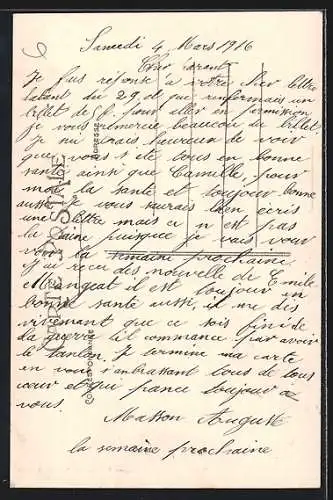 Samedi 4 Mars 1916
Cher parent
Je fais réponse a votre cher lettre
datant du 29 et qui renfermais un
billet de 5f. pour aller en permission
je vous remercie beaucoup du billet
Je me serais heureux de voir
que vous s ete tous en bonne
sante ainsi que Camille, pour
moi la sante et toujour bonne
aussi. Je vous saurais bien ecris
une lettre mais ce n est pas
la paine puisque je vais vous
voir la semaine prochaine
J'ai recu des nouvelle de Emile
Mangeat il est toujour en
bonne santé aussi, il me dis
vivement que ce sois fini de
la guerre il commance par avoir
le Je termine ma carte
en vous s'enbrassant tous de tous
cœur et qui pense toujour a
vous.
Masson Auguste
la semaine prochaine
CARTE POSTALE
ADRESSE
Correspondance